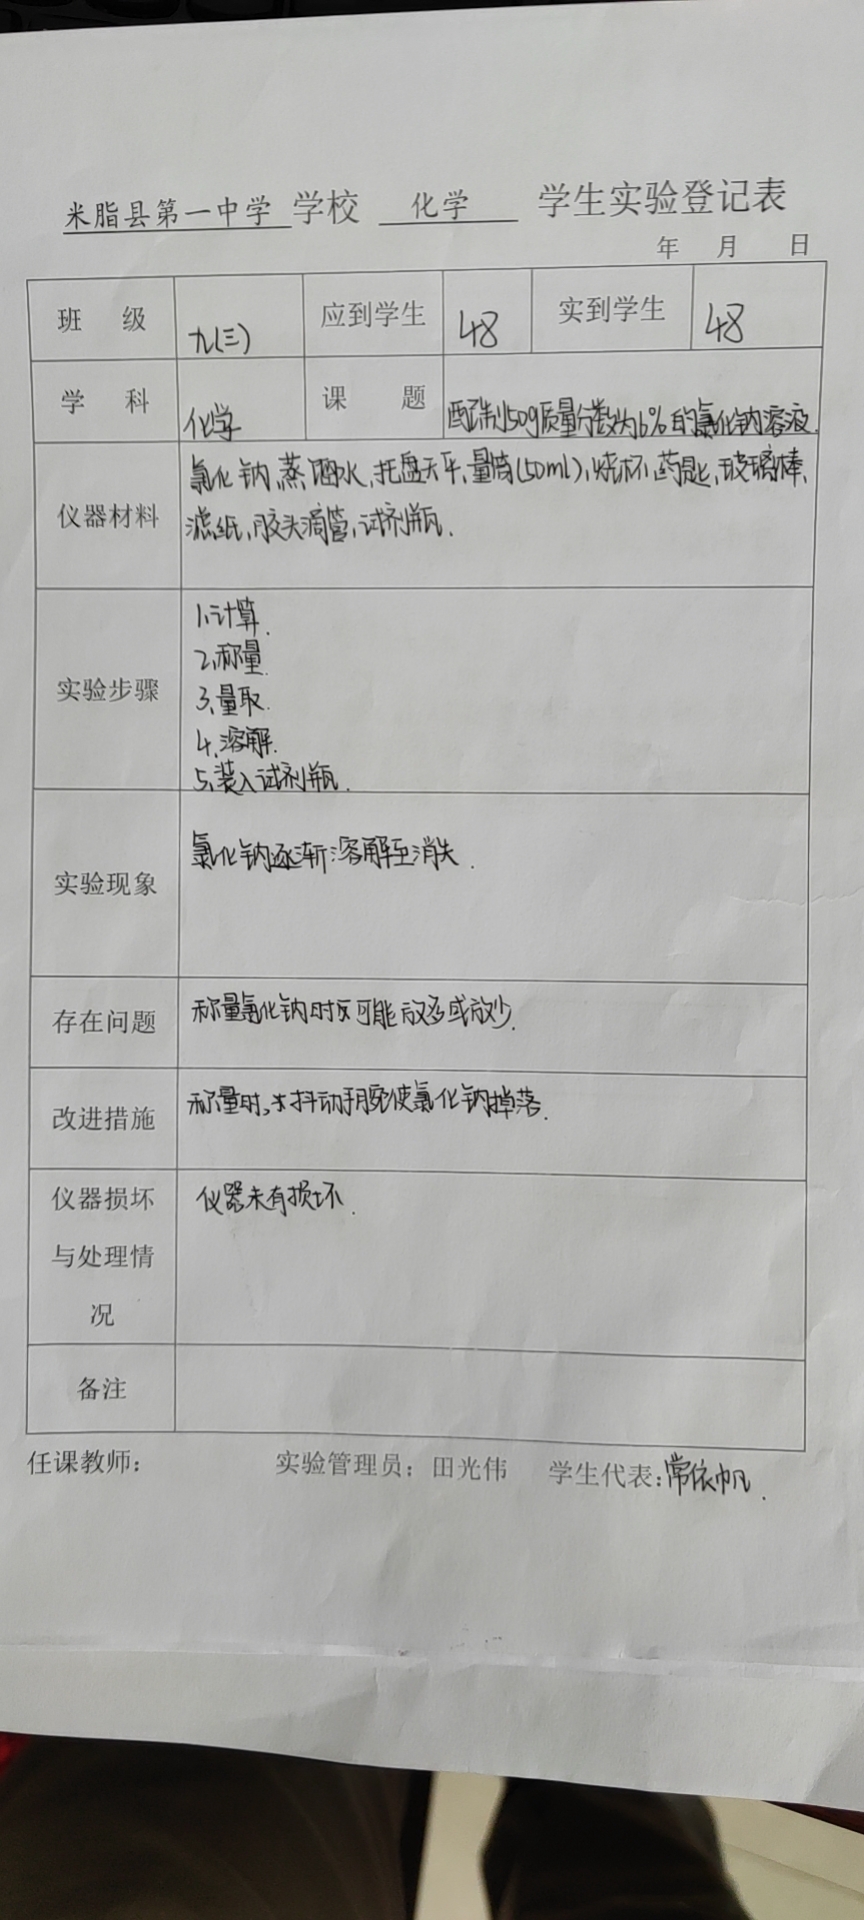 米脂县第一中学 学校 化学 学生实验登记表
年 月 日
班 级 九(三) 应到学生 48 实到学生 48
学 科 化学 课 题 配制50g质量分数为6%的氯化钠溶液.
仪器材料
氯化钠,蒸馏水,托盘天平,量筒(50ml),烧杯,药匙,玻璃棒,
滤纸,胶头滴管,试剂瓶.
实验步骤
1.计算.
2.称量.
3.量取.
4.溶解.
5.装入试剂瓶.
实验现象
氯化钠逐渐溶解至消失.
存在问题
称量氯化钠时 可能放多或放少.
改进措施
称量时, 抖动手腕使氯化钠掉落.
仪器损坏
与处理情
况
仪器未有损坏.
备注
任课教师: 实验管理员: 田光伟 学生代表:常依帆.